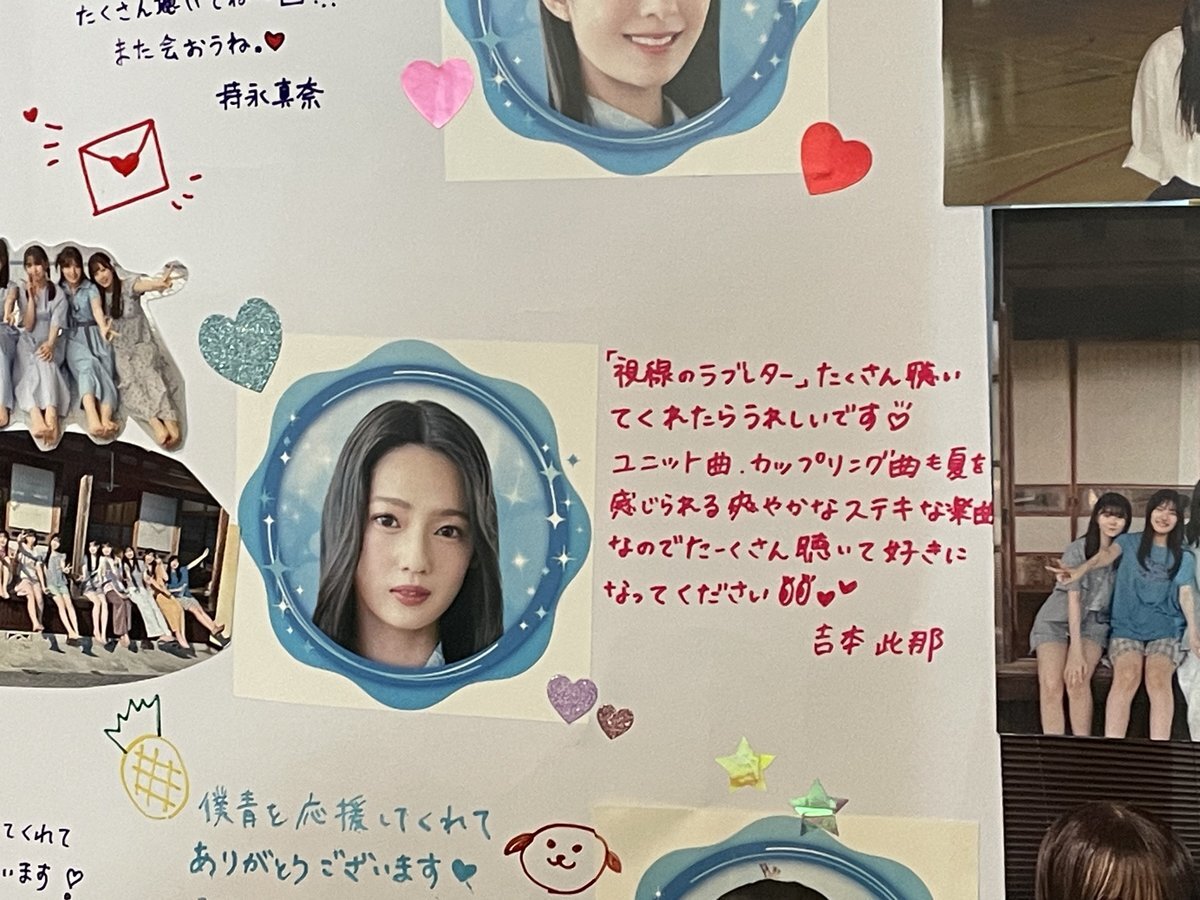 たくさん聴いてね
また会おうね。
持永真奈
「視線のラブレター」たくさん聴い
てくれたらうれしいです
ユニット曲.カップリング曲も夏を
感じられる爽やかなステキな楽曲
なのでたーくさん聴いて好きに
なってください
吉本此那
僕青を応援してくれて
ありがとうございます
てくれて
います